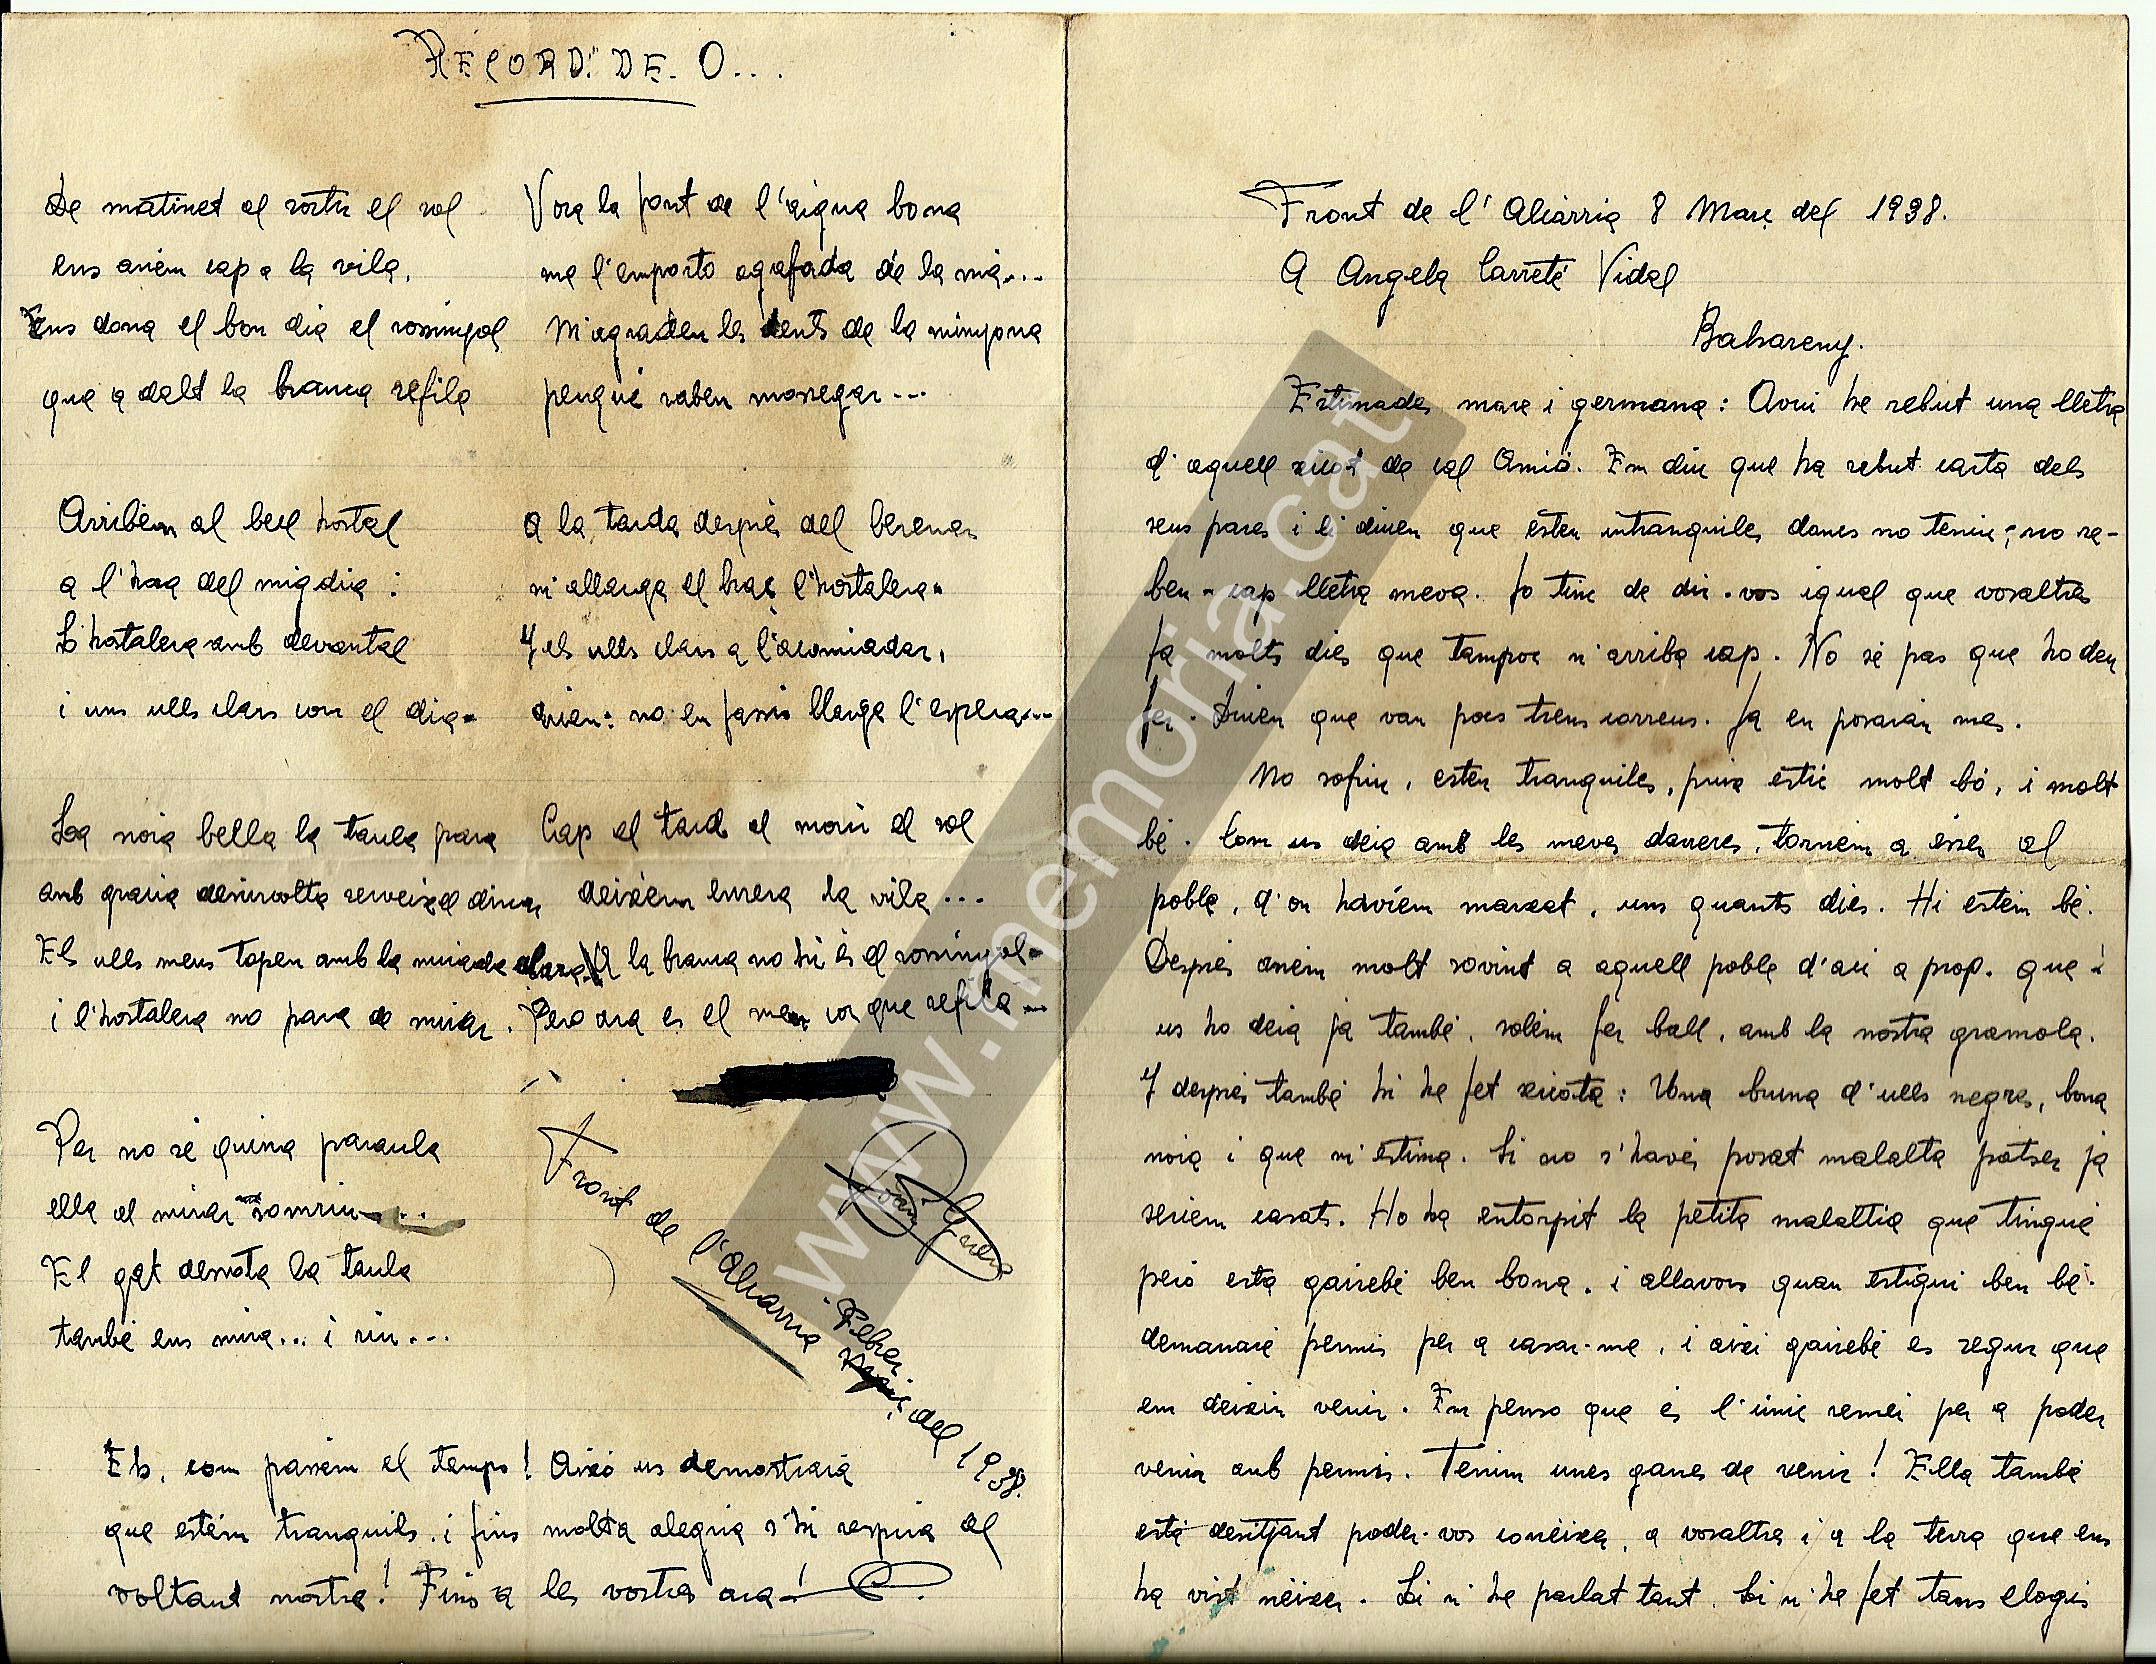 RECORD: DE. O...
De matinet al sortir el sol
ens anèm cap a la vila,
Ens dona el bon dia el rossinyol
que a dalt la branca refila
Arribèm al bell hostal
a l'hora del migdia:
L'hostalera amb devantal
i uns ulls clars com el dia.
La noia bella la taula para
amb gracia desinvolta serveix el dinar
Els ulls meus topen amb la mirada clara
i l'hostalera no para de mirar.
Per no sé quina paraula
ella al mirar-me somriu...
El gat desnota la taula
també ens mira... i riu...
Vora la font de l'aigua bona
me l'emporto agafada de la mà....
M'agraden les dents de la minyona
perquè saben mossegar...
A la tarda després del berenar
m'allarga el braç l'hostalera.
Y els ulls clars a l'acomiadar,
diuen: no em fassis llarga l'espera...
Cap al tard al morir el sol
deixèm enrera la vila...
A la branca no hi és el rossinyol.
Pero ara es el meu cor que refila...
Joan
Front de l'Alcarria - Febrer del 1938.
Eh, com passèm el temps! Aixó us demostrarà
que estèm tranquils, i fins molta alegria s'hi respira al
voltant nostre! Fins a les vostres ara!
Front de l'Alcàrria 8 Març del 1938.
A Angela Carreté Vidal
Barbareny.
Estimades mare i germana: Avui he rebut una lletra
d'aquell xicot de cal Amió. Em diu que ha rebut carta dels
seus pares i li diuen que esteu intranquiles doncs no teniu, no re-
beu - cap lletra meva. Jo tinc de dir-vos igual que vosaltres
fa molts dies que tampoc m'arriba cap. No sé pas que ho deu
fer. Diuen que van pocs trens correus. Ja en posaràn mes.
No sofriu, esteu tranquiles, puix estic molt bó, i molt
bé. Com us deia amb les meves darreres, tornèm a ésser al
poble, d'on havíem marxat, uns quants dies. Hi estèm bé.
Després anèm molt sovint a aquell poble d'aci a prop. que
us ho deia ja també, solèm fer ball, amb la nostra gramola.
Y després també hi he fet xicota: Una bruna d'ulls negres, bona
noia i que m'estima. Si no s'havés posat malalta potser ja
seriem casats. Ho ha entorpit la petita malaltia que tingué
però està gairebé ben bona, i allavors quan estigui ben bé.
demanaré permís per a casar-me, i aixi gairebé es segur que
em deixin venir. Em penso que és l'únic remei per a poder
venir amb permís. Tenim unes ganes de venir! Ella també
està desitjant poder-vos coneixer, a vosaltres i a la terra que em
ha vist néixer. Li n'he parlat tant. Li n'he fet tans elogis
www.memoria.cat